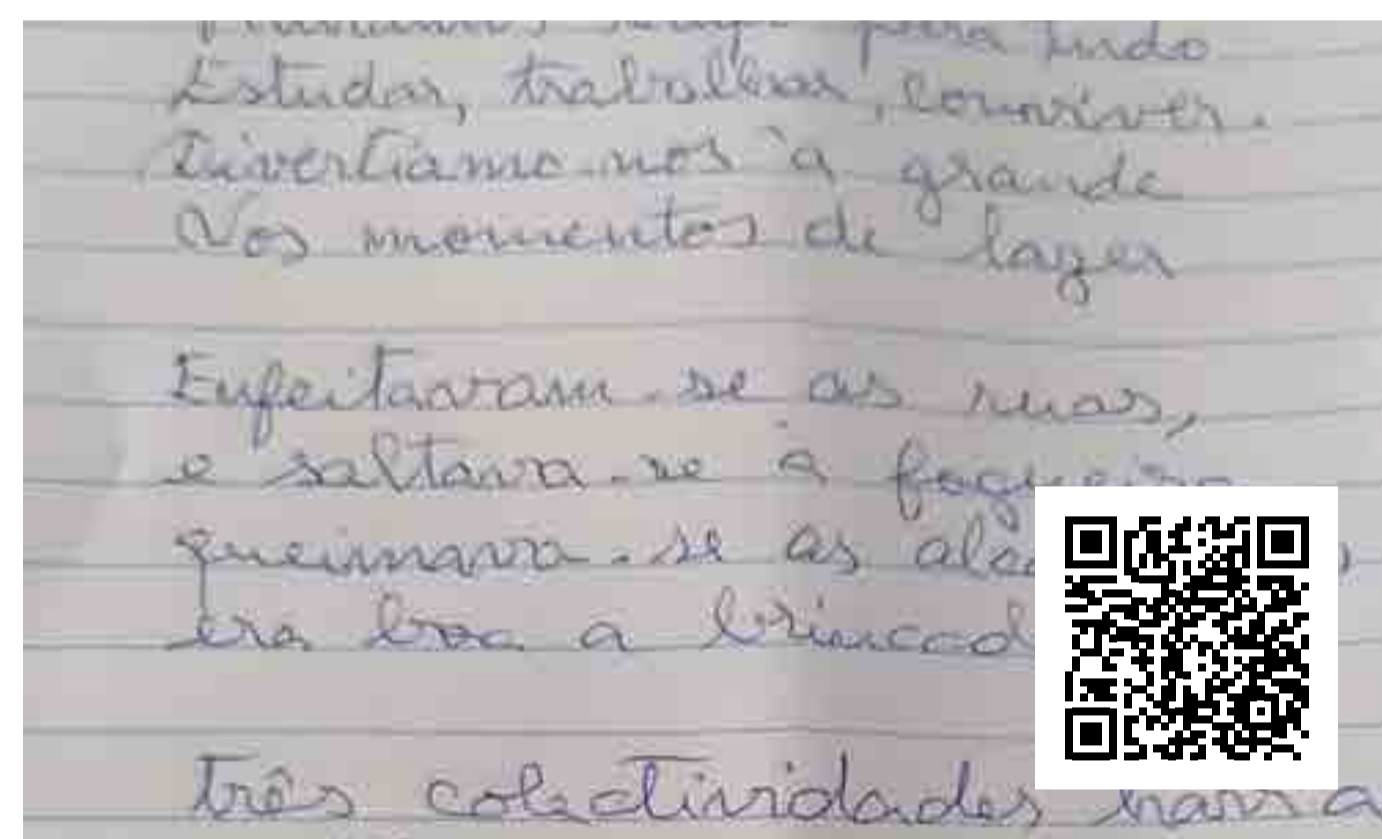 para tudo
Estudar, trabalhar, conviver.
Divertiamo-nos à grande
Nos momentos de lazer
Enfeitavam-se as ruas,
e saltava-se à fogueira
queimava-se as
era boa a
três colectividades